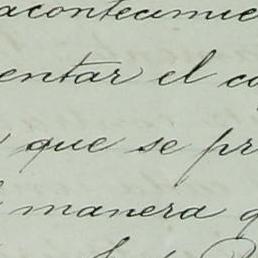 acontecimie
entar el co
que se pr
manera q